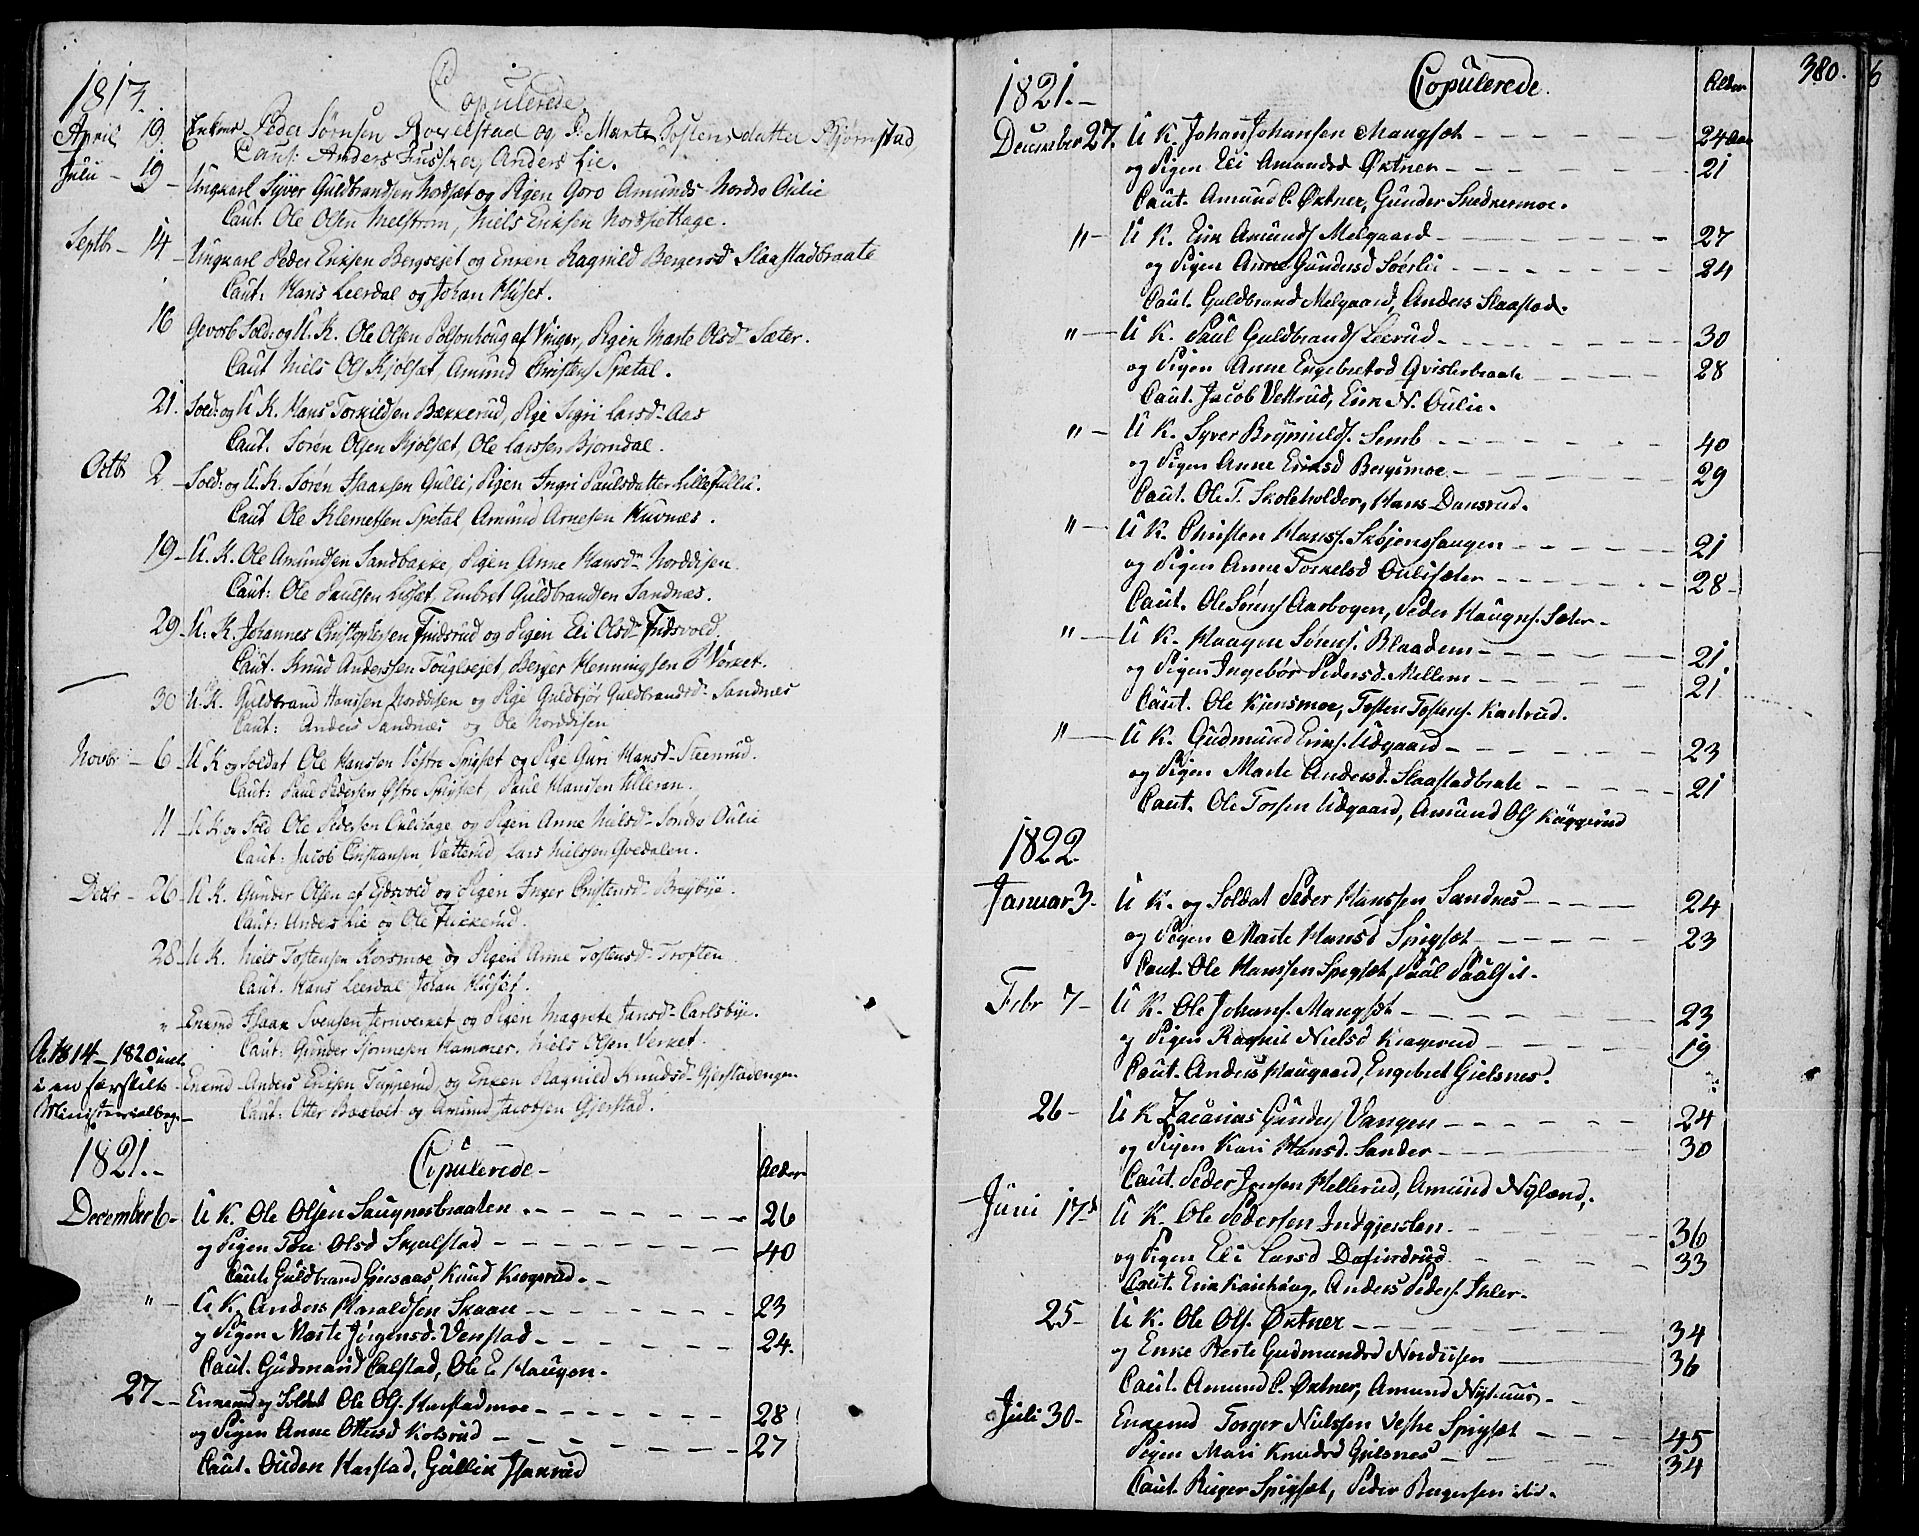 1813.
Copulerede
April 19. Enkem Peder Sørnsen og P. Marte Tostensdatter Bjørnstad
Caut: Anders Anders Lie.
Juli - 19 - Ungkarl Syver Guldbrandsen Nordset og Pigen Goro Amunds- Nordre Oulie
Caut. Ole Olsen Melstrøm, Niels Eriksen Nordsethage.
Septb - 14 - Ungkarl Peder Eriksen Bergsejet og Enken Ragnild Bergersd Slaastadbraate
Caut: Hans Leerdal og Johan Huset.
16 Gevorb Sold: og U. K. Ole Olsen af Vinger, Pigen Marte Olsd- Sæter.
Caut Niels Ols Kjølset, Amund Christens Spetal.
21. Sold: og U K. Hans Torkildsen Bækkerud, Pige Sigri Larsd- Aas
Caut. Sørén Olsen Kjølset, Ole Larssen Bjørndal.
Octb 2 - Sold: og U. K. Sørén Isaaksen Gulli, Pigen Ingri Paulsdatter Lillefulli.
Caut Ole Klemetsen Spetal, Amund Arnesen Kuvnæs.
19 - U. K. Ole Amundsen Sandbakke, Pigen Anne Hansd- Norddisen
Caut: Ole Paulsen Lisset, Embret Guldbrandsen Sandnæs.
29 - U. K. Johannes Christophersen Fridsrud og Pigen Eli Olsd- Fridsvold.
Caut. Knud Anderssen Berger Henningsen Verket.
30 U. K. Guldbrand Hanssen Norddisen og Pige Guldbjør Guldbrandsd- Sandnes
Caut: Anders Sandnæs og Ole Norddisen
Novbr - 6 - U K og Soldat Ole Hanssen Vestre Spigset og Pige Guri Hansd- Steenrud.
Caut: Paul Pedersen Østre Spigset, Paul Hanssen Ulleren.
11 - U K og Sold Ole Pedersen Oulihage og Pigen Anne Nielsd- Søndre Oulie
Caut: Jacob Christiansen Vætterud, Lars Nielssen Gvedalen.
Decbr - 26 - U. K. Gunder Olsen af Eidsvold og Pigen Inger Christensd-
Caut: Anders Lie og Ole Flikkerud.
28 - U K. Niels Tostensen Korsmoe og Pigen Anne Tostensd- Troften
Caut. Hans Leerdal Johan Huset.
" - Enkemd Isaak Svensen Jernverket og Pigen Magnete Jansd- Carlsbye.
Caut: Gunder Hammer. Niels Olsen Verket.
A. 1814 - 1820 incl.
i en særskilt
Ministerialbog
Enkemd Anders Eriksen og Enken Ragnild Knudsd- Gjerstadengen
Caut: Otter og Amund Jacobsen Gjerstad.
1821. -
Copulerede -
Alder
December 6 - U K. Ole Olsen Saugnesbraaten - 26
og Pigen Olsd Skjulstad - 40
Caut. Guldbrand Knud Kragerud. -
" - U K. Anders Haraldsen Skaare - 23
og Pigen Marte Jørgensd. Venstad - 24.
Caut. Gudmand Calstad, Ole E. Haugen.
27 - - Enkemd og Soldat Ole Ols. Harstadmoe - 28
og Pigen Anne Ottersd Kolsrud - 27
Caut. Ouden Harstad, Gullik Isakrud
380.
1821. -
Copulerede.
Alder
December 27. U K. Johan Johansen Mangset - 24 Aar
og Pigen Eli Amundsd Øktner - 21
Caut. Amund P. Øktner, Gunder
" - U K. Erik Amunds Melgaard - 27
og Pigen Anne Gundersd Søerlie - 24
Caut. Guldbrand Melgaard, Anders Slaastad.
" - U K. Paul Guldbrands Leerud - 30
og Pigen Anne Engebretsd Qvisterbraate - 28
Caut. Jacob Vettrud, Erik N. Oulie.
" - U K. Syver Brynilds. Semb - 40
og Pigen Anne Eriksd Bergsmoe - 29
Caut. Ole T. Skoleholder, Hans Dansrud.
" - U K. Christen Hans. Skøienshaugen - 21
og Pigen Anne Torkelsd Oulisæter - 28 -
Caut. Ole Sørens Aarbogen, Peder Haugns. Sæter -
" - U K. Haagen Sørens. Blaadem - 21
og Pigen Ingebor Pedersd. Mellem - 21
Caut. Ole Kjensmoe, Tosten Tostens. Karterud.
" - U K. Gudmund Eriks. Udgaard - 23
og Pigen Marte Andersd. Slaastadbrate - 21
Caut. Ole Torsen Udgaard, Amund Ols Kuggerud
1822
Januar 3 - U K. og Soldat Peder Hanssen Sandnes - 24
og Pigen Marte Hansd Spigset - 23
Caut. Ole Hanssen Spigset, Paul
Febr 7 - U K. Ole Johans. Mangset - 23
og Pigen Ragnil Nielsd Kragerud - 19
Caut. Anders Haugaard, Engebret Gielsnes.
26 - U K Zacarias Gunders Vangen - 24
og Pigen Kari Hansd. Sander - 30
Caut. Peder Jensen Hellerud, Amund Nyland,
Juni 17d U K. Ole Pedersen Indgjersten - 36
og Pigen Eli Larsd Dafinrud - 33
Caut. Erik Anders Peders.
25 - U K. Ole Ols. Øktner - 34
og Enke Berte Gudmundsd Nordiisen - 36
Caut. Amund P. Øktner, Amund
Juli 30 - Enkemd Torger Nielssen Vestre Spigset - 45
Pigen Mari Knudsd Gjelsnes - 34
Caut. Birger Spigset, Peder Bergersen ibid.